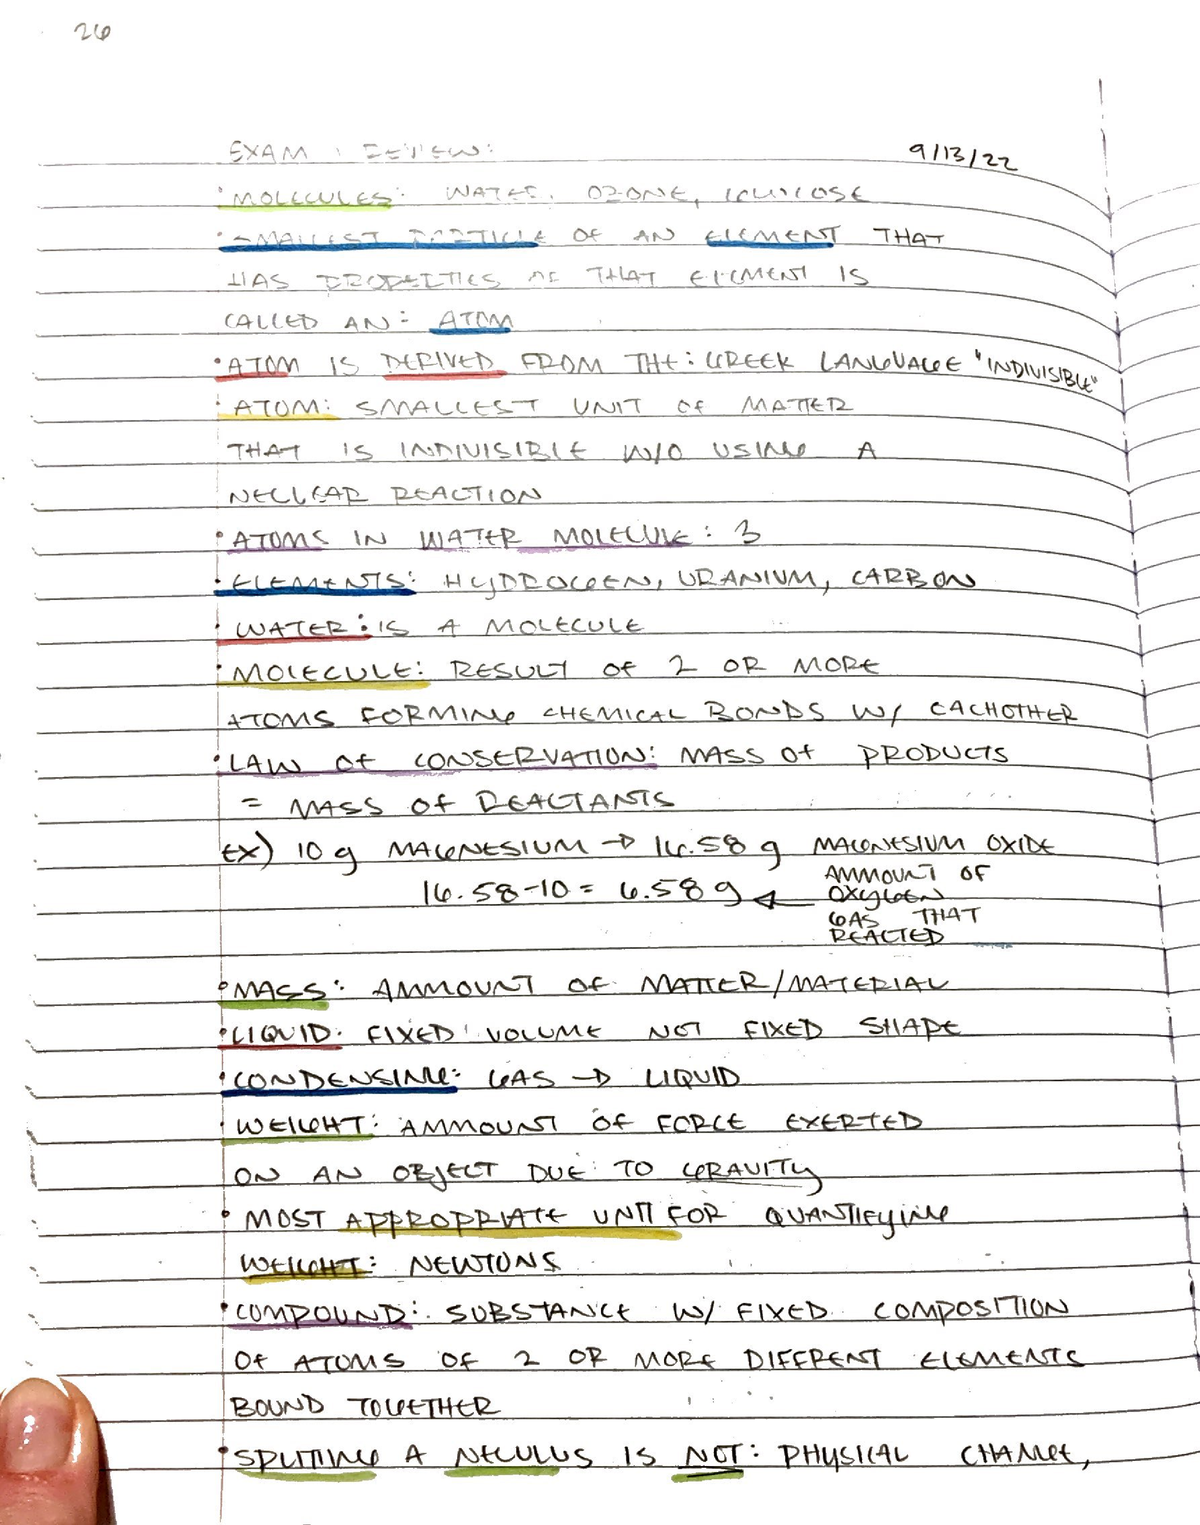 26
EXAM 1 REVIEW:
9/13/22
• MOLECULES: WATER, OZONE, GLUCOSE
• SMALLEST PARTICLE OF AN ELEMENT THAT
HAS PROPERTIES OF THAT ELEMENT IS
CALLED AN: ATOM
• ATOM IS DERIVED FROM THE: GREEK LANGUAGE "INDIVISIBLE"
• ATOM: SMALLEST UNIT OF MATTER
THAT IS INDIVISIBLE W/O USING A
NECLEAR REACTION
• ATOMS IN WATER MOLECULE: 3
• ELEMENTS: HYDROGEN, URANIUM, CARBON
• WATER: IS A MOLECULE
• MOLECULE: RESULT OF 2 OR MORE
ATOMS FORMING CHEMICAL BONDS W/ EACHOTHER
• LAW OF CONSERVATION: MASS OF PRODUCTS
= MASS OF REACTANTS
EX) 10 g MAGNESIUM → 16.58 g MAGNESIUM OXIDE
16.58-10 = 6.58 g ← AMMOUNT OF
OXYGEN
GAS THAT
REACTED
• MASS: AMMOUNT OF MATTER/MATERIAL
• LIQUID: FIXED VOLUME NOT FIXED SHAPE
• CONDENSING: GAS → LIQUID
• WEIGHT: AMMOUNT OF FORCE EXERTED
ON AN OBJECT DUE TO GRAVITY
• MOST APPROPRIATE UNIT FOR QUANTIFYING
WEIGHT: NEWTONS
• COMPOUND: SUBSTANCE W/ FIXED COMPOSITION
OF ATOMS OF 2 OR MORE DIFFERENT ELEMENTS
BOUND TOGETHER
• SPLITTING A NECULUS IS NOT: PHYSICAL CHANGE,